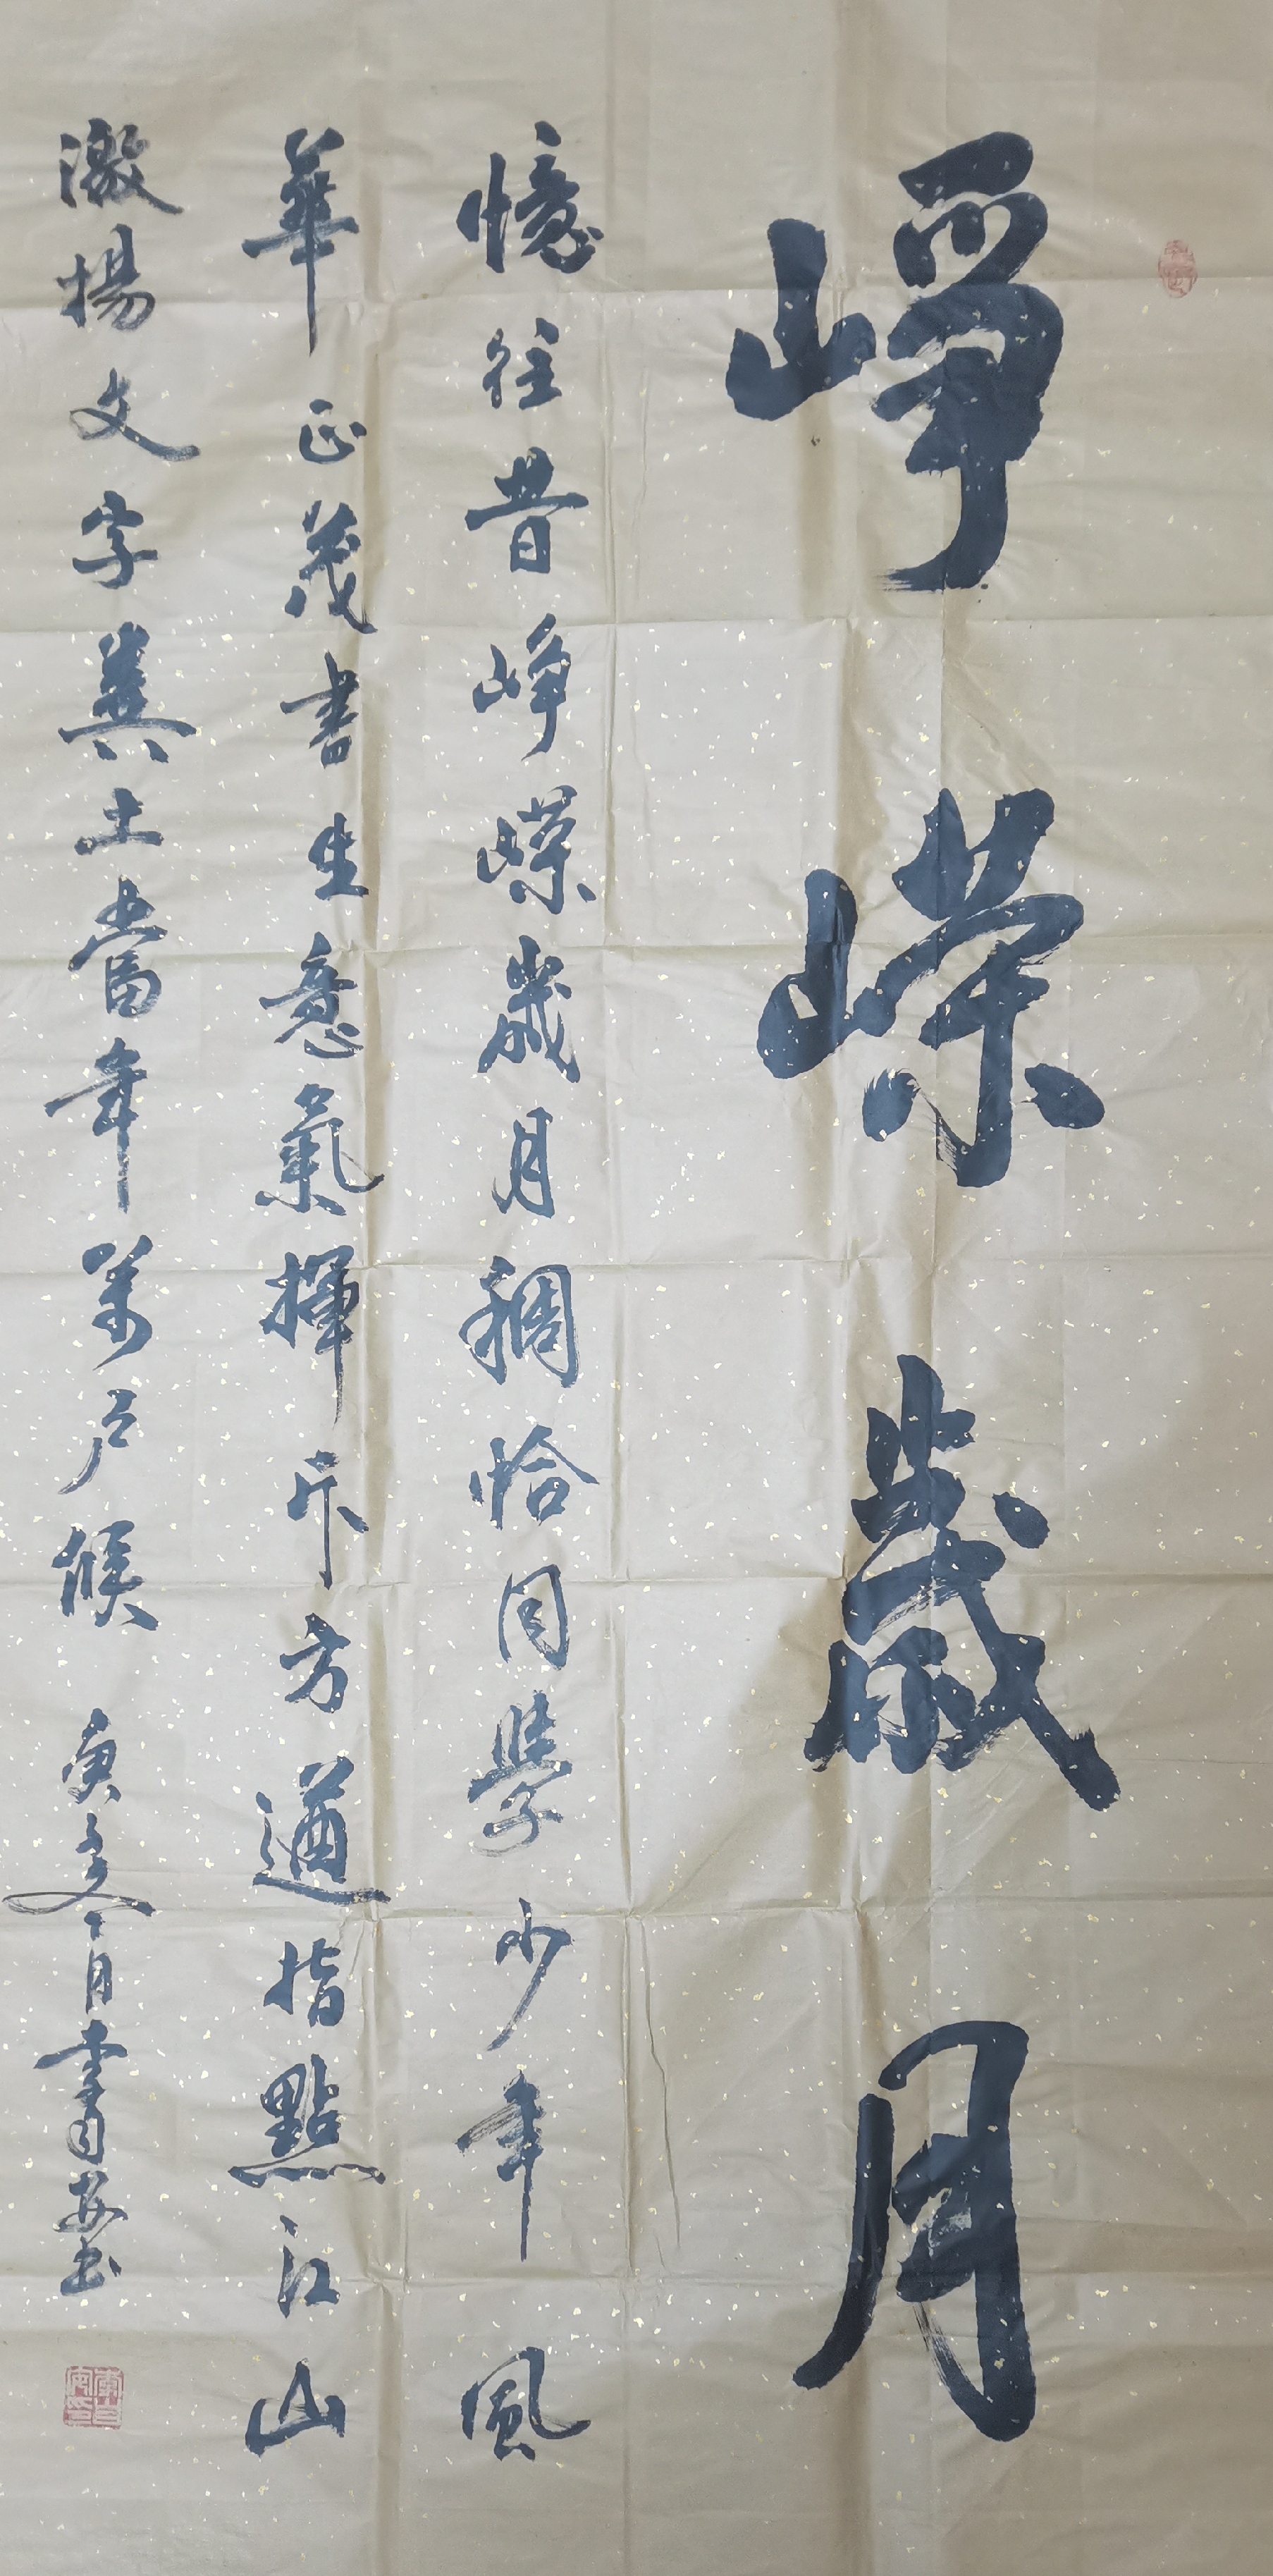 崢嶸歲月
憶往昔崢嶸歲月稠恰同學少年風
華正茂書生意氣揮斥方遒指點江山
激揚文字糞土當年萬户候 庚月李自安书